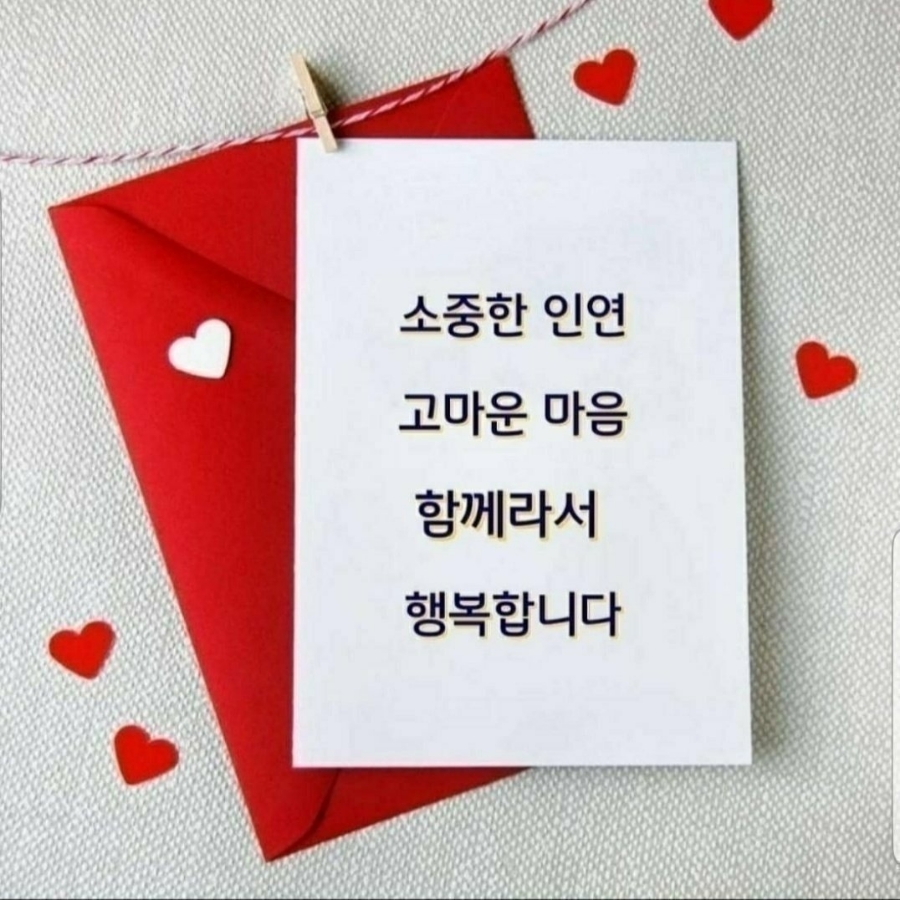 소중한 인연
고마운 마음
함께라서
행복합니다